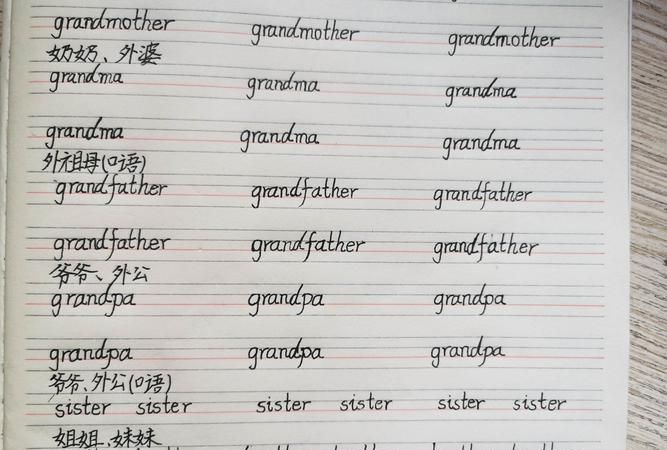 grandmother grandmother grandmother
奶奶、外婆
grandma grandma grandma
grandma grandma grandma
外祖母(口语)
grandfather grandfather grandfather
grandfather grandfather grandfather
爷爷、外公
grandpa grandpa grandpa
grandpa grandpa grandpa
爷爷、外公(口语)
sister sister sister sister sister sister
姐姐、妹妹